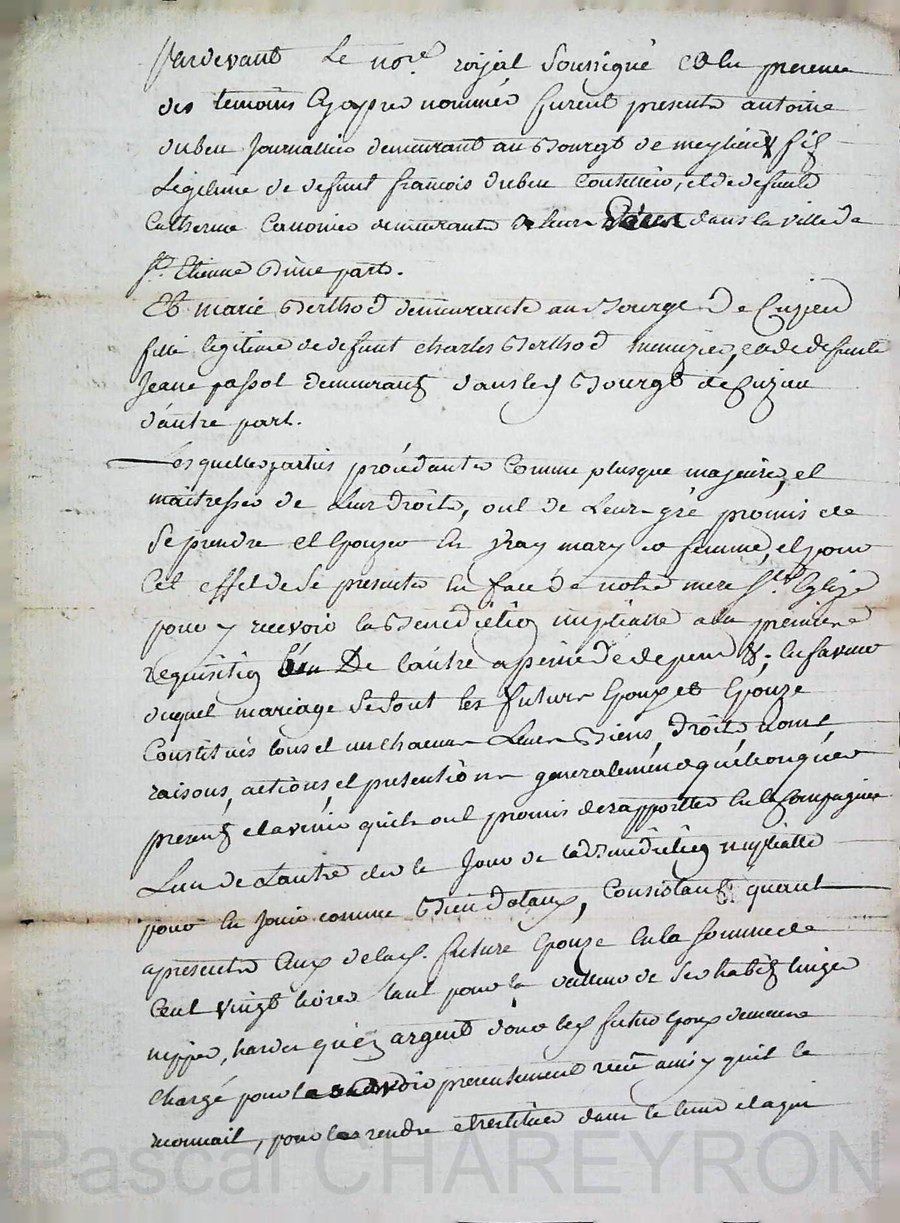 Pardevant Le no.re royal Soussigné Et en presence
des temoins Cy apres nommés furent presents antoine
dubeu Journallier demeurant au Bourgt de meylieu fils
Legitime de defunt françois dubeu Coutellier, et de defunte
Catherine Canonier demeurants de leurs dans la ville de
St. Etienne D'une part.
Et marie Berthod demeurante au Bourgt De Cuzieu
fille legitime de defunt charles Berthod menuzier, et de defunte
Jeane passot demeurants dans led. Bourgt de Cuzieu
d'autre part.
Lesquelles parties procédantes Comme plusque majeures, et
maitresses de Leur droits, ont de Leur gré promis de
Se prendre et Epouzer En vray mary et femme, et pour
Cet effet de Se presenter En face de notre mere Ste. Eglize
pour y recevoir la Benediction nuptialle a la premiere
requisition De l'autre a peine de depens &; En faveur
duquel mariage Se Sont les futurs Epoux et Epouze
Constitués tous et un chacun Leurs Biens, droits, noms
raisons, actions et pretentions generalement quelconques
presents et avenir quils ont promis de rapporter En la Compagnie
L'un de L'autre des le Jour de la Benediction nuptialle
pour En Jouir comme Bien dotaux, Consistants quant
a presents Ceux de lad. future Epouze En la Somme de
Cent vingt livres tant pour la valleur de Ses habits linges
nippes, hardes qu'en argent dont led. futur Epoux demeure
chargé pour presentement reçû ainsy quil le
reconnait, pour les rendre et restituer dans le lieu et a qui
Pascal CHAREYRON